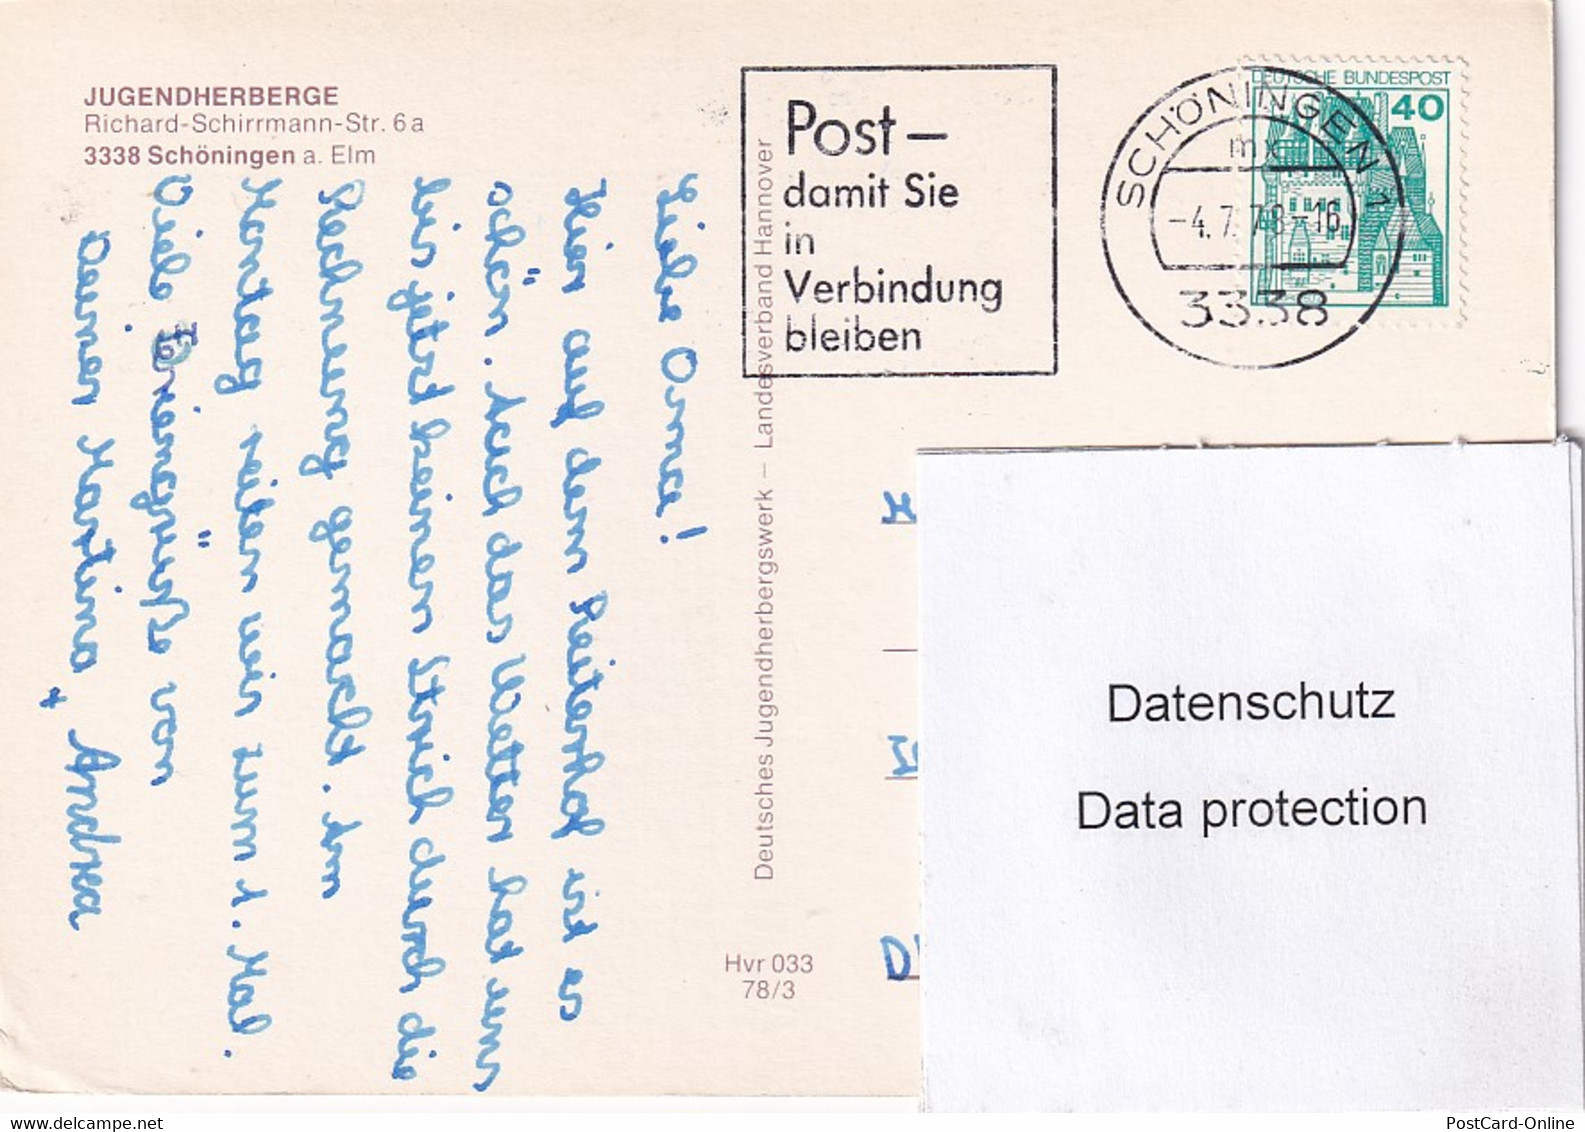 JUGENDHERBERGE
Richard-Schirrmann-Str. 6a
3338 Schöningen a. Elm
Liebe Oma!
Hier auf dem Reiterhof ist es
schön. Auch das Wetter hat uns
bis jetzt keinen Strich durch die
Rechnung gemacht. Am
Montag reiten wir zum 1. Mal.
Viele Feriengrüße von
Deiner Martina + Andrea
Deutsches Jugendherbergswerk – Landesverband Hannover
Hvr 033
78/3
Post –
damit Sie
in
Verbindung
bleiben
SCHÖNINGEN 1
mx
-4.7.78-16
3338
DEUTSCHE BUNDESPOST
40
Datenschutz
Data protection
PostCard-Online